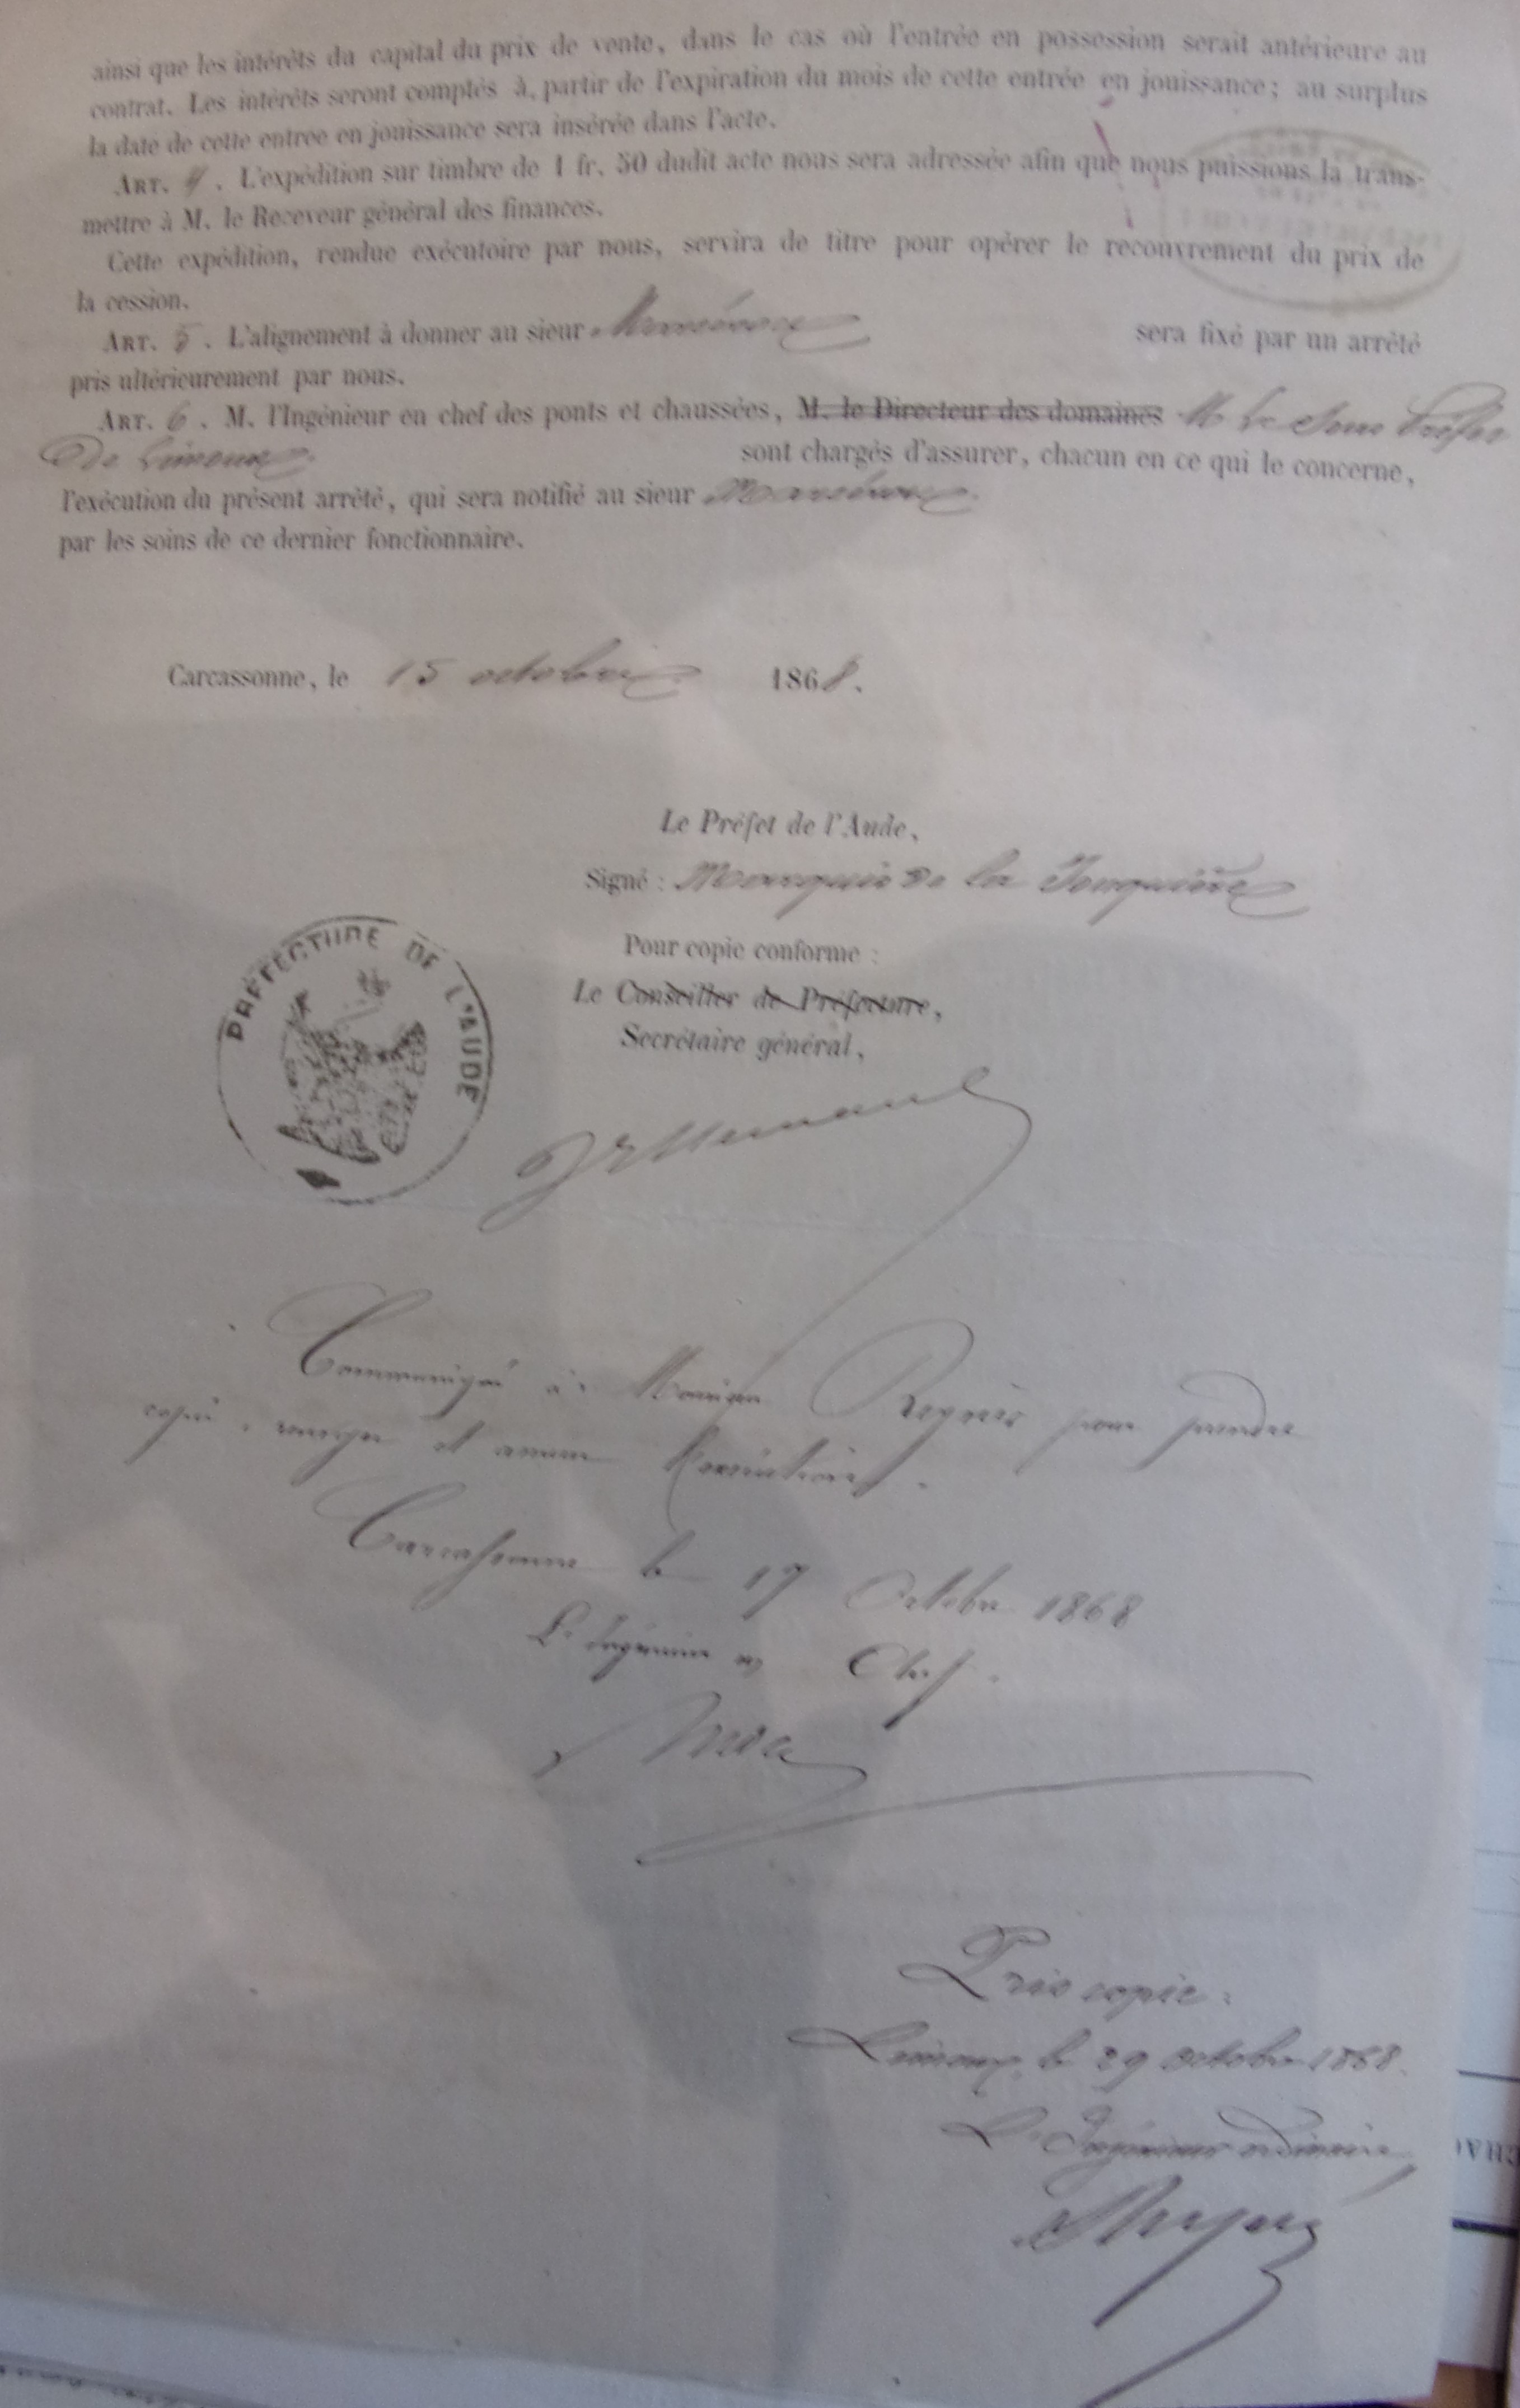 ainsi que les intérêts du capital du prix de vente, dans le cas où l'entrée en possession serait antérieure au
contrat. Les intérêts seront comptés à partir de l'expiration du mois de cette entrée en jouissance; au surplus
la date de cette entrée en jouissance sera insérée dans l'acte.
ART. 4. L'expédition sur timbre de 1 fr. 50 dudit acte nous sera adressée afin que nous puissions la trans-
mettre à M. le Receveur général des finances.
Cette expédition, rendue exécutoire par nous, servira de titre pour opérer le recouvrement du prix de
la cession.
ART. 5. L'alignement à donner au sieur sera fixé par un arrêté
pris ultérieurement par nous.
ART. 6. M. l'Ingénieur en chef des ponts et chaussées, M. le Directeur des domaines M. le Sous Préfet
de Limoux sont chargés d'assurer, chacun en ce qui le concerne,
l'exécution du présent arrêté, qui sera notifié au sieur
par les soins de ce dernier fonctionnaire.
Carcassonne, le 15 octobre 1868.
Le Préfet de l'Aude,
Signé : Marquis de la Jonquière
Pour copie conforme :
Le Conseiller de Préfecture,
Secrétaire général,
PRÉFECTURE DE L'AUDE
Communiqué à Monsieur Regnis pour prendre
copie, et
Carcassonne le 17 Octobre 1868
L'Ingénieur en Chef.
Pris copie :
Limoux, le 29 octobre 1868.
L'Ingénieur ordinaire